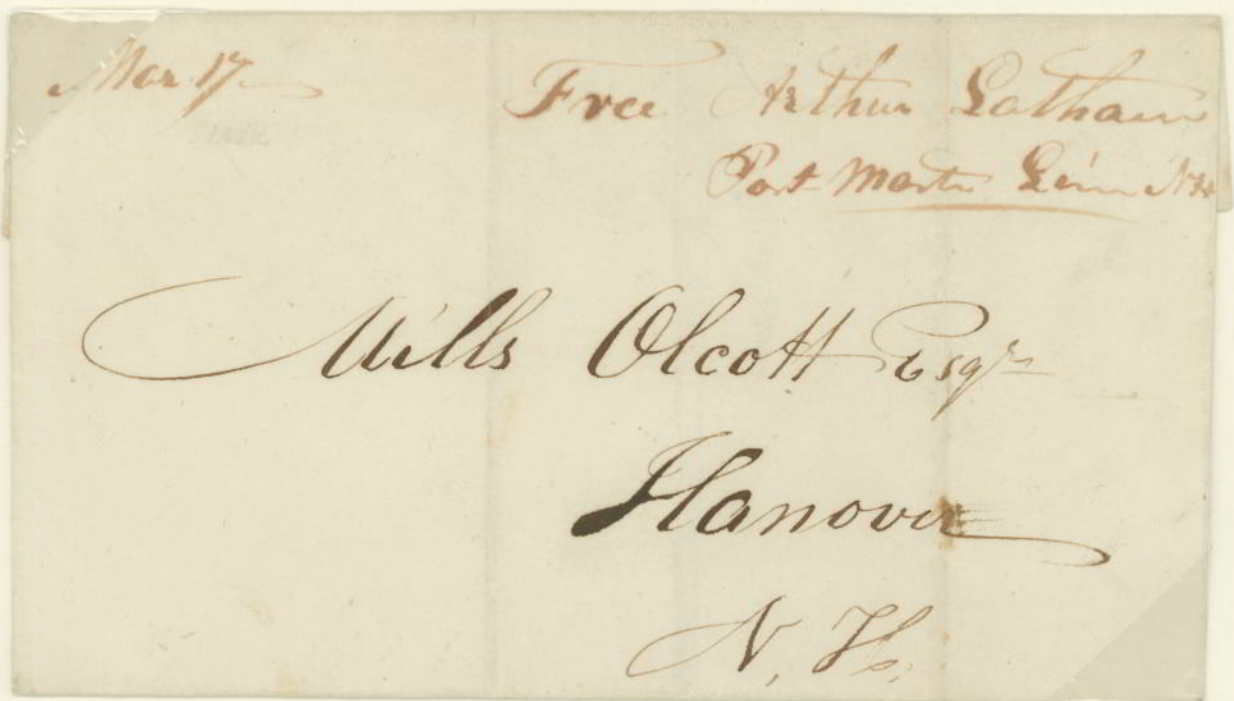 Mar 17
Free Arthur Latham
Post Master Lime N H
Mills Olcott Esqr
Hanover
N. H.